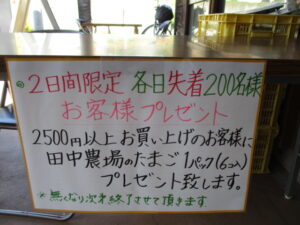 2日間限定 各日失着200名様
お客様プレゼント
2500円以上お買い上げのお客様に
田中農場のたまご1パック(6コ入)
プレゼント致します。
※無くなり次第終了させて頂きます